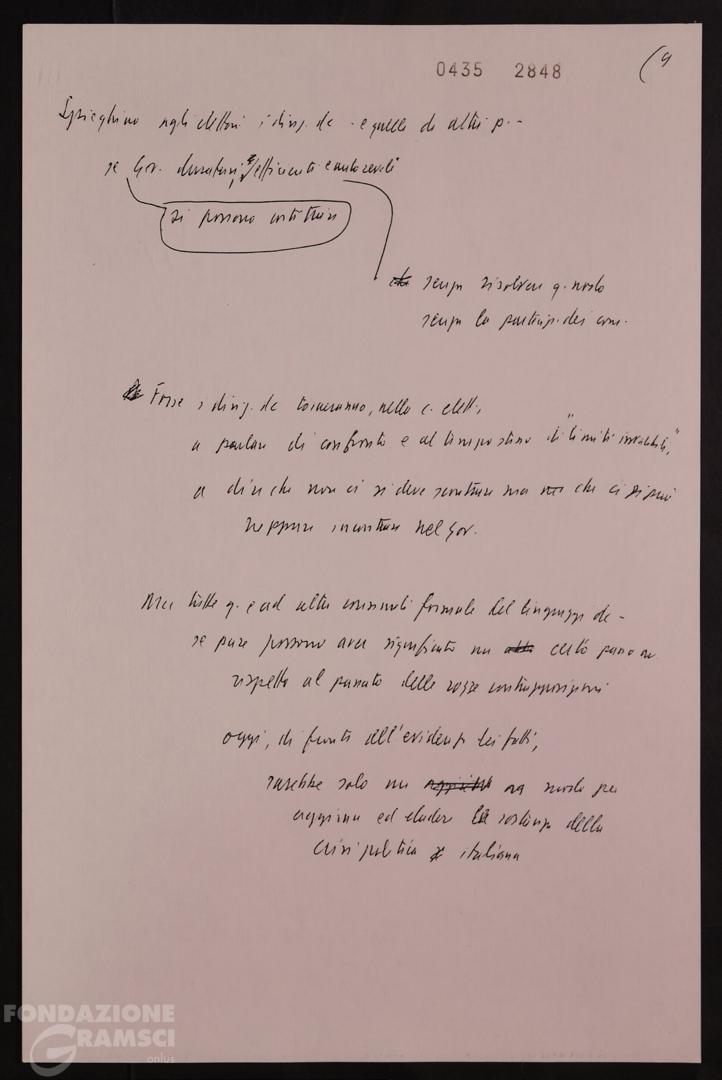 0435 2848
(9
Spieghino agli elettori i dirig. dc - e quelli di altri p. -
se Gov. duraturi, e efficienti e autorevoli
si possono costituire
senza risolvere q. nodo
senza la partecip. dei com.
Forse i dirig. dc torneranno, nella c. elett.,
a parlare di confronto e al tempo stesso di "limiti invalicabili",
a dire che non ci si deve scontrare ma che ci si può
neppure incontrare nel Gov.
Ma tutte q. e ad altre formule del linguaggio dc -
se pure possono aver significato un certo passo av.
rispetto al passato delle rozze contrapposizioni
oggi, di fronte all'evidenza dei fatti,
sarebbe solo un modo per
aggirare ed eludere la sostanza della
crisi politica italiana
FONDAZIONE
GRAMSCI
onlus